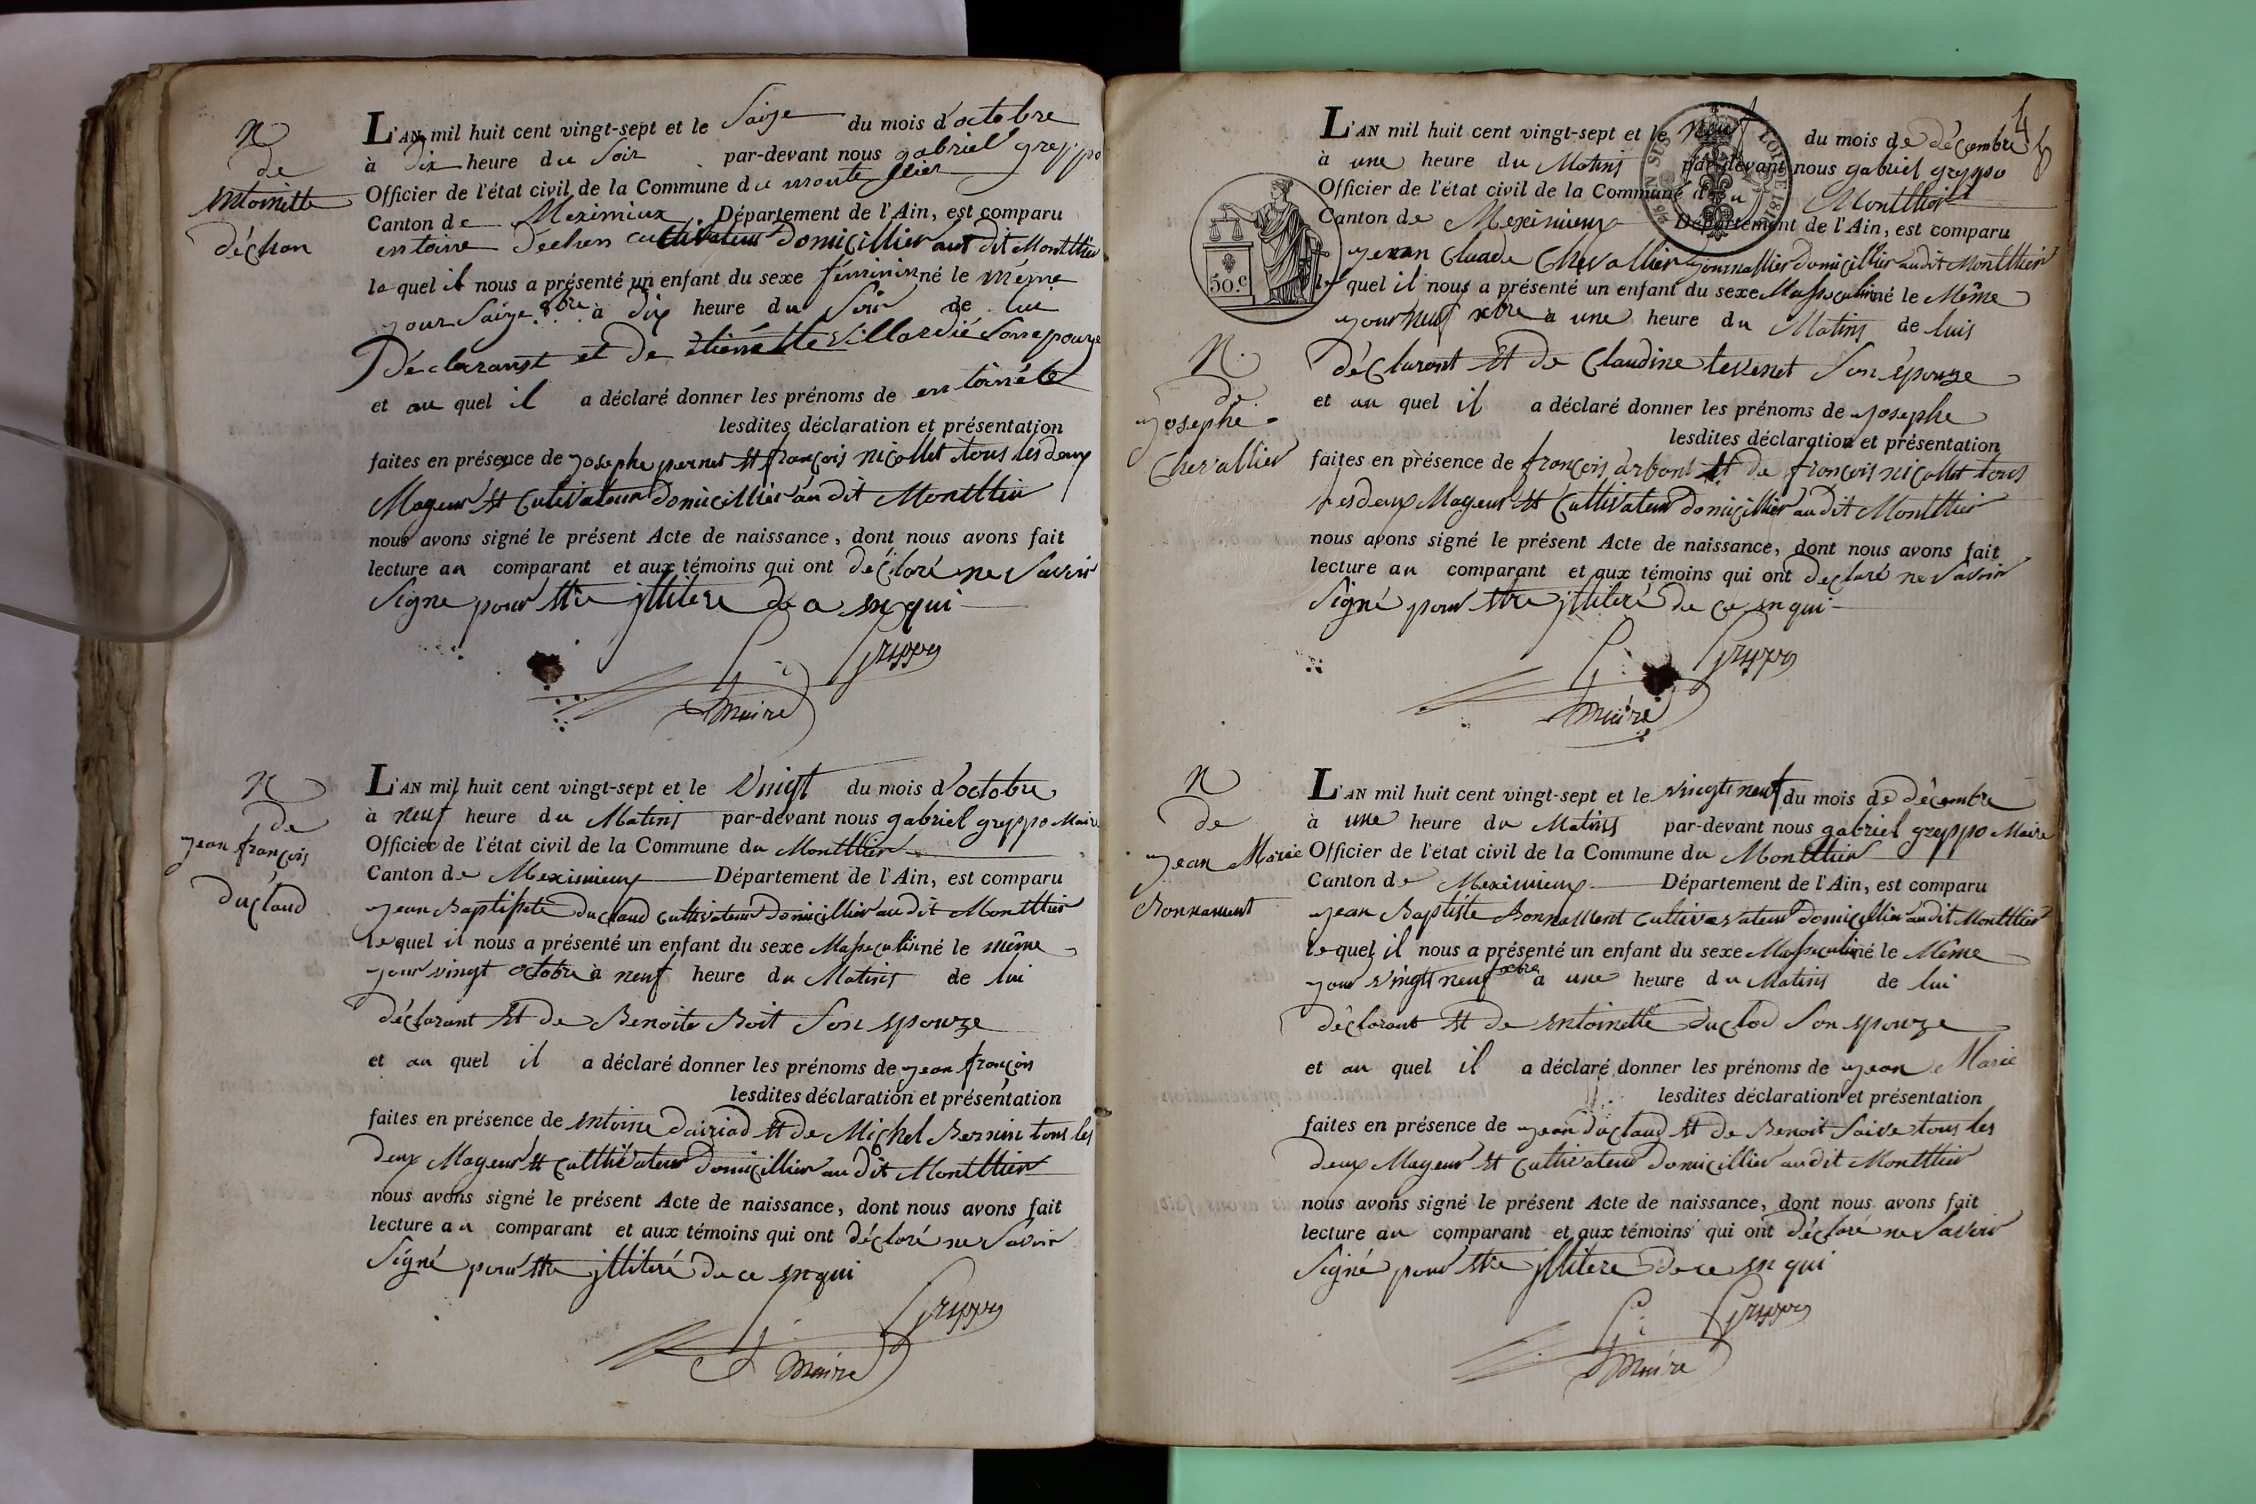 N
de
entoinette
déchon
L'AN mil huit cent vingt-sept et le Saize du mois d'octobre
à dix heure du Soir par-devant nous gabriel greppo
Officier de l'état civil de la Commune du montellier
Canton de Meximieux Département de l'Ain, est comparu
entoine dechon cultivateur domicillier au dit Monttlier
le quel il nous a présenté un enfant du sexe féminin né le même
jour Saize 8bre à dix heure du Soir de lui
Déclarant et de etiénette Villardié Son epouze
et au quel il a déclaré donner les prénoms de entoinéte
lesdites déclaration et présentation
faites en présence de josephe pernet Et françois nicollet tous les deux
Mageur Et Cultivateur domicillier au dit Monttlier
nous avons signé le présent Acte de naissance, dont nous avons fait
lecture au comparant et aux témoins qui ont déclaré ne Savoir
Signe pour Etre illitere de ce enqui
G. Greppo
Maire
N
de
jean françois
duclaud
L'AN mil huit cent vingt-sept et le Vingt du mois d'octobre
à neuf heure du Matins par-devant nous gabriel greppo Maire
Officier de l'état civil de la Commune du Monttlier
Canton de Meximieux Département de l'Ain, est comparu
jean Baptiste duclaud cultivateur domicillier au dit Monttlier
le quel il nous a présenté un enfant du sexe Massculin né le même
jour vingt octobre à neuf heure du Matins de lui
déclarant Et de Benoite Boit Son epouze
et au quel il a déclaré donner les prénoms de jean françois
lesdites déclaration et présentation
faites en présence de entoine dairiad Et de Michel Bernin tous les
deux Mageur Et Culttivateur domicillier au dit Monttlier
nous avons signé le présent Acte de naissance, dont nous avons fait
lecture au comparant et aux témoins qui ont déclaré ne Savoir
Signé pour Etre illiteré de ce enqui
G. Greppo
Maire
46
L'AN mil huit cent vingt-sept et le neuf du mois de décembre
à une heure du Matins par-devant nous gabriel greppo
Officier de l'état civil de la Commune du Monttlier
Canton de Meximieux Département de l'Ain, est comparu
jean Cluade Chevallier journallier domicillier au dit Monttlier
50.c
le quel il nous a présenté un enfant du sexe Massculin né le Même
jour neuf xbre à une heure du Matins de luis
N.
de
josephe
Chevallier
déClarant Et de Claudine tevenet Son épouze
et au quel il a déclaré donner les prénoms de josephe
lesdites déclaration et présentation
faites en présence de françois arbant Et de françois nicollet tous
les deux Mageur Et Cultivateur domicillier au dit Monttlier
nous avons signé le présent Acte de naissance, dont nous avons fait
lecture au comparant et aux témoins qui ont declaré ne Savoir
Signé pour Etre illiteré de ce enqui
G. Greppo
Maire
N
de
jean Marie
Bonnament
L'AN mil huit cent vingt-sept et le vingt neuf du mois de décembre
à une heure du Matins par-devant nous gabriel greppo Maire
Officier de l'état civil de la Commune du Monttlier
Canton de Meximieux Département de l'Ain, est comparu
jean Baptiste Bonnament cultivavateur domicillier au dit Monttlier
le quel il nous a présenté un enfant du sexe Massculin né le Même
jour vingt neuf xbre à une heure du Matins de lui
déclarant Et de entoinette duclod Son epouze
et au quel il a déclaré donner les prénoms de jean Marie
lesdites déclaration et présentation
faites en présence de jean duclaud Et de Benoit Saive tous les
deux Mageur Et Cultivateur domicillier au dit Monttlier
nous avons signé le présent Acte de naissance, dont nous avons fait
lecture au comparant et aux témoins qui ont déclaré ne Savoir
Signé pour Etre illitere de ce enqui
G. Greppo
Maire